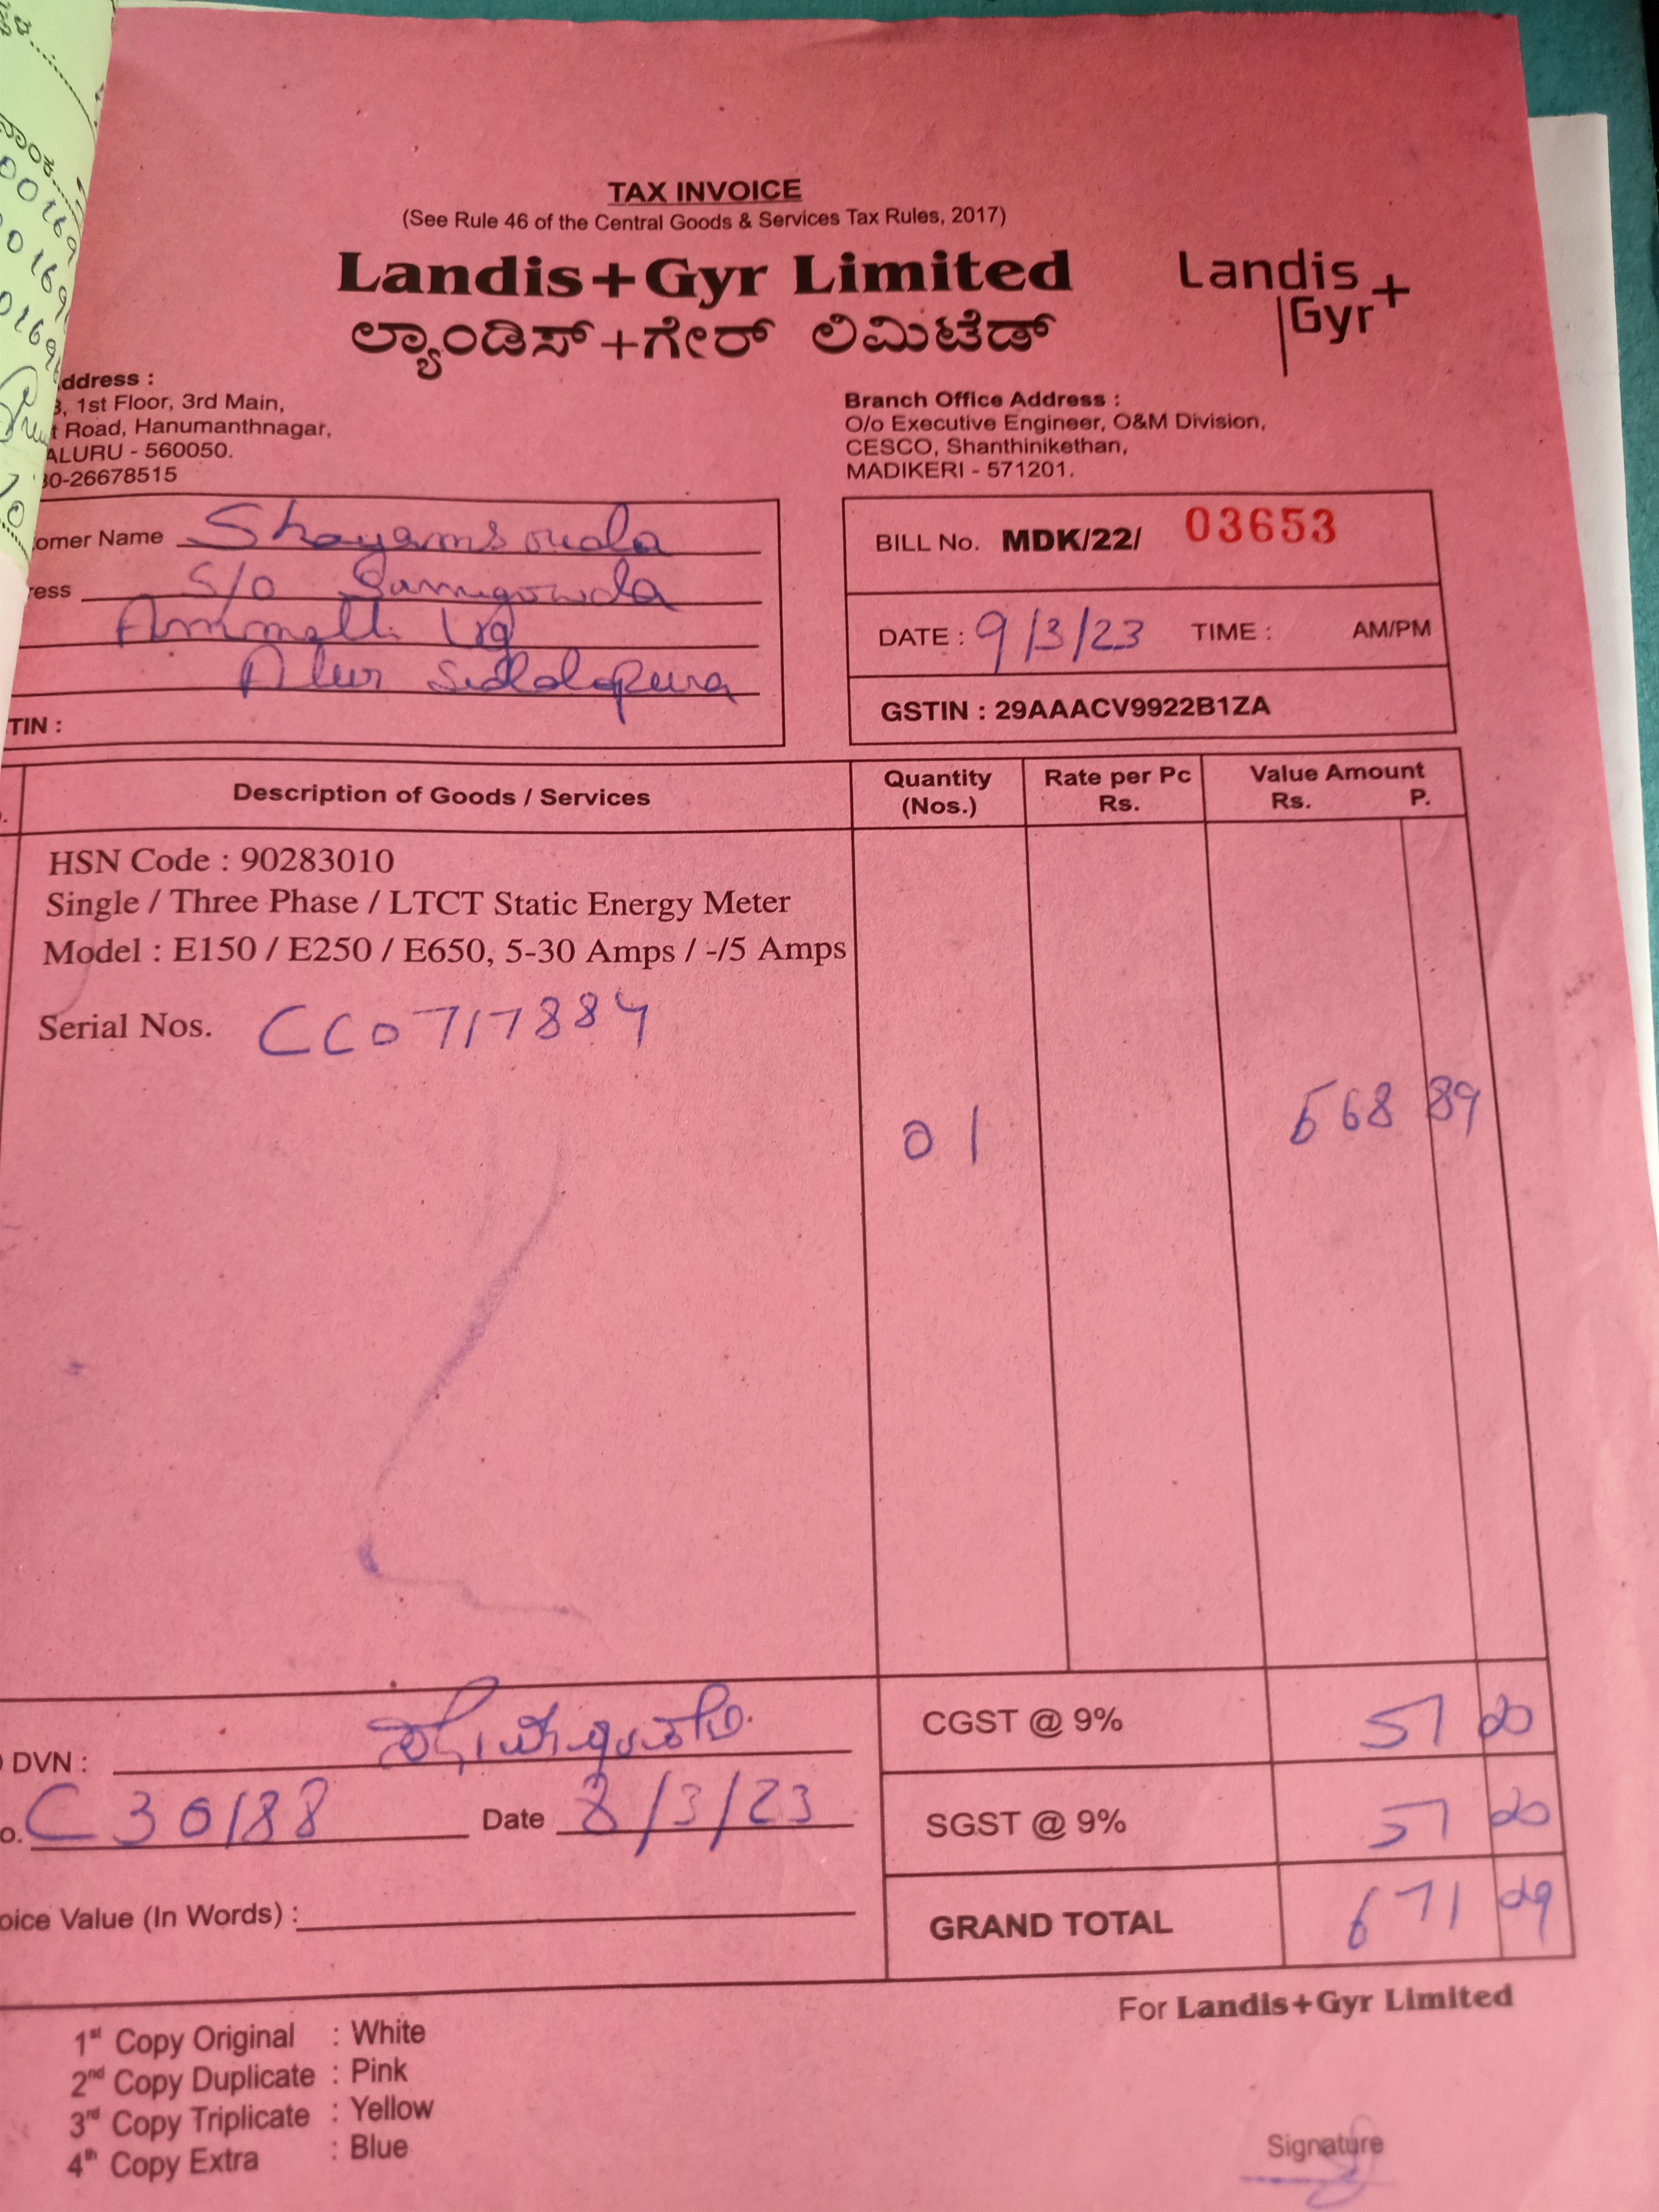 TAX INVOICE
(See Rule 46 of the Central Goods & Services Tax Rules, 2017)
Landis+Gyr Limited
ಲ್ಯಾಂಡಿಸ್+ಗೇರ್ ಲಿಮಿಟೆಡ್
Landis
Gyr+
ddress :
, 1st Floor, 3rd Main,
t Road, Hanumanthnagar,
ALURU - 560050.
80-26678515
Branch Office Address :
O/o Executive Engineer, O&M Division,
CESCO, Shanthinikethan,
MADIKERI - 571201.
omer Name
ress S/o
Alur
TIN :
BILL No. MDK/22/ 03653
DATE : 9/3/23 TIME : AM/PM
GSTIN : 29AAACV9922B1ZA
Description of Goods / Services
Quantity (Nos.)
Rate per Pc Rs.
Value Amount
Rs. P.
HSN Code : 90283010
Single / Three Phase / LTCT Static Energy Meter
Model : E150 / E250 / E650, 5-30 Amps / -/5 Amps
Serial Nos. CC0717884
01 568 89
DVN :
o. C30188 Date 8/3/23
oice Value (In Words) :
CGST @ 9% 51 20
SGST @ 9% 51 20
GRAND TOTAL 671 29
For Landis+Gyr Limited
1st Copy Original : White
2nd Copy Duplicate : Pink
3rd Copy Triplicate : Yellow
4th Copy Extra : Blue
Signature